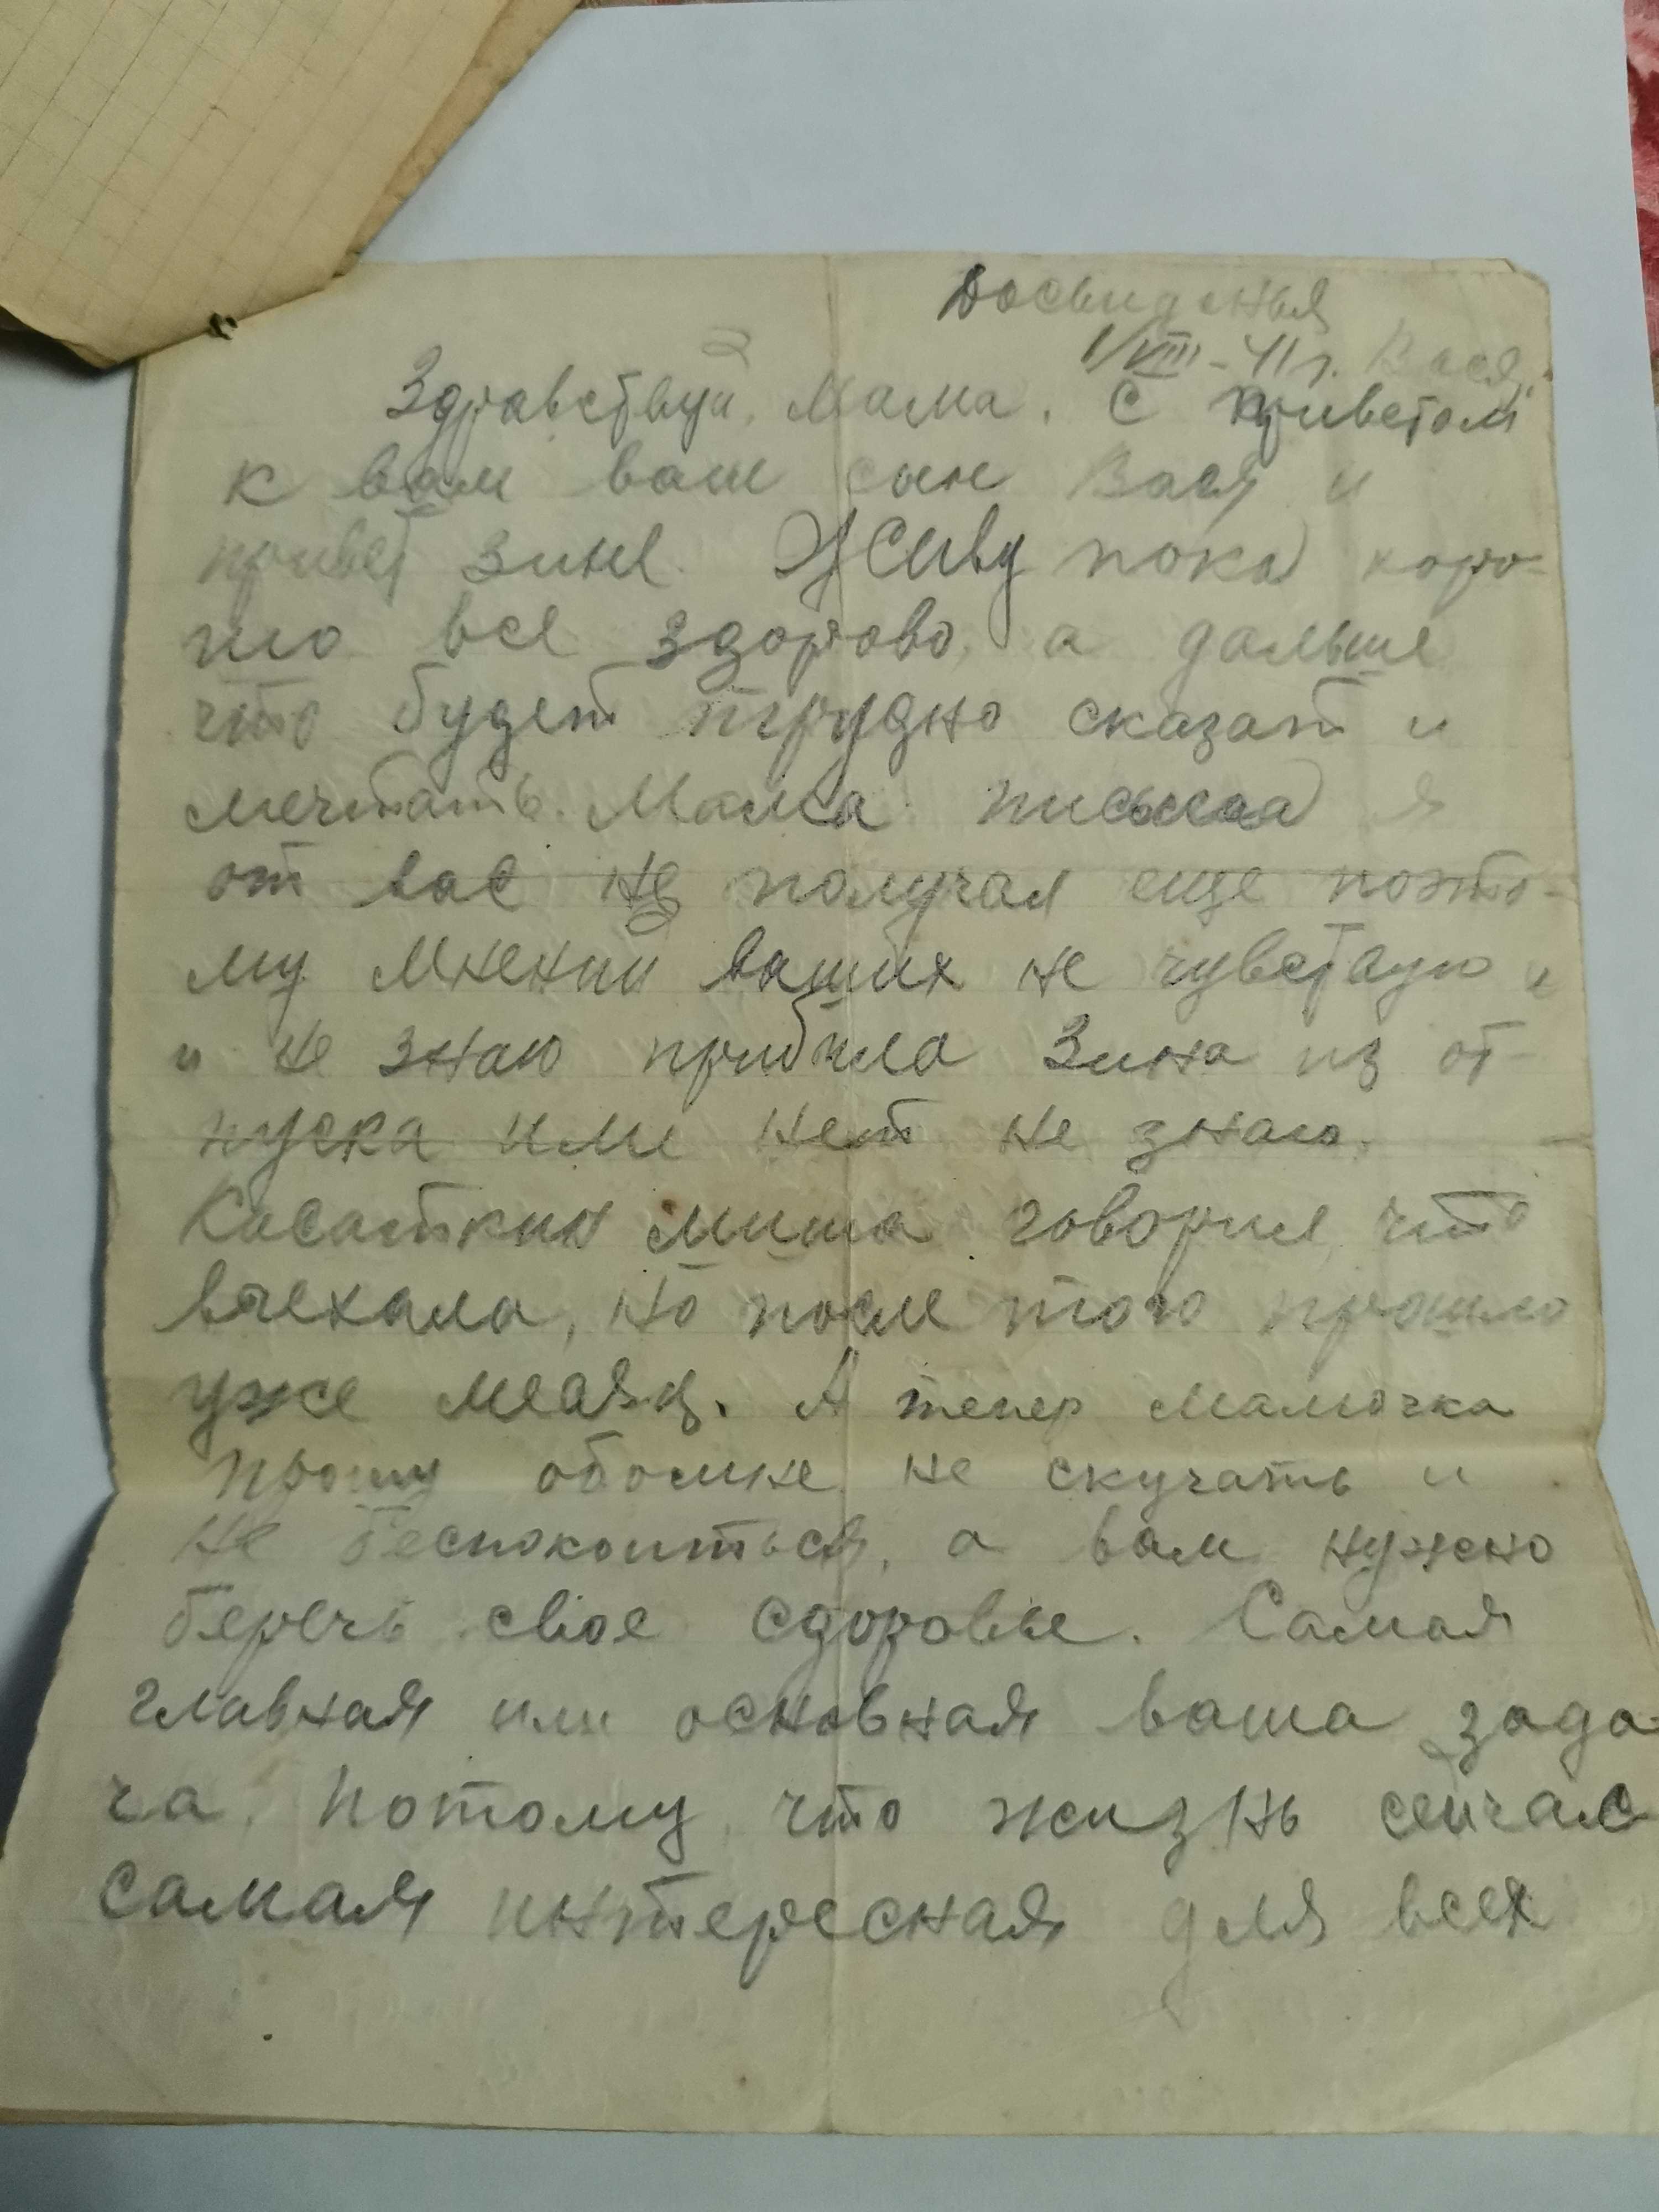 Досвиданья
1/VIII-41 г. Вася
Здравствуй, Мама. С приветом
к вам ваш сын Вася и
привет Зине. Живу пока хоро-
шо все здорово, а дальше
что будет трудно сказат и
мечтать. Мама письма я
от вас не получал еще поэто-
му мнении ваших не чувствую и
и не знаю прибила Зина из от-
пуска или нет не знаю.
Касаткин Миша говорил, что
виехала, но после того прошло
уже месяц. А тепер мамочка
прошу обомне не скучать и
не беспокоиться, а вам нужно
беречь свое сдоровье. Самая
главная или основная ваша зада-
ча, потому, что жизнь сейчас
самая интересная для всех